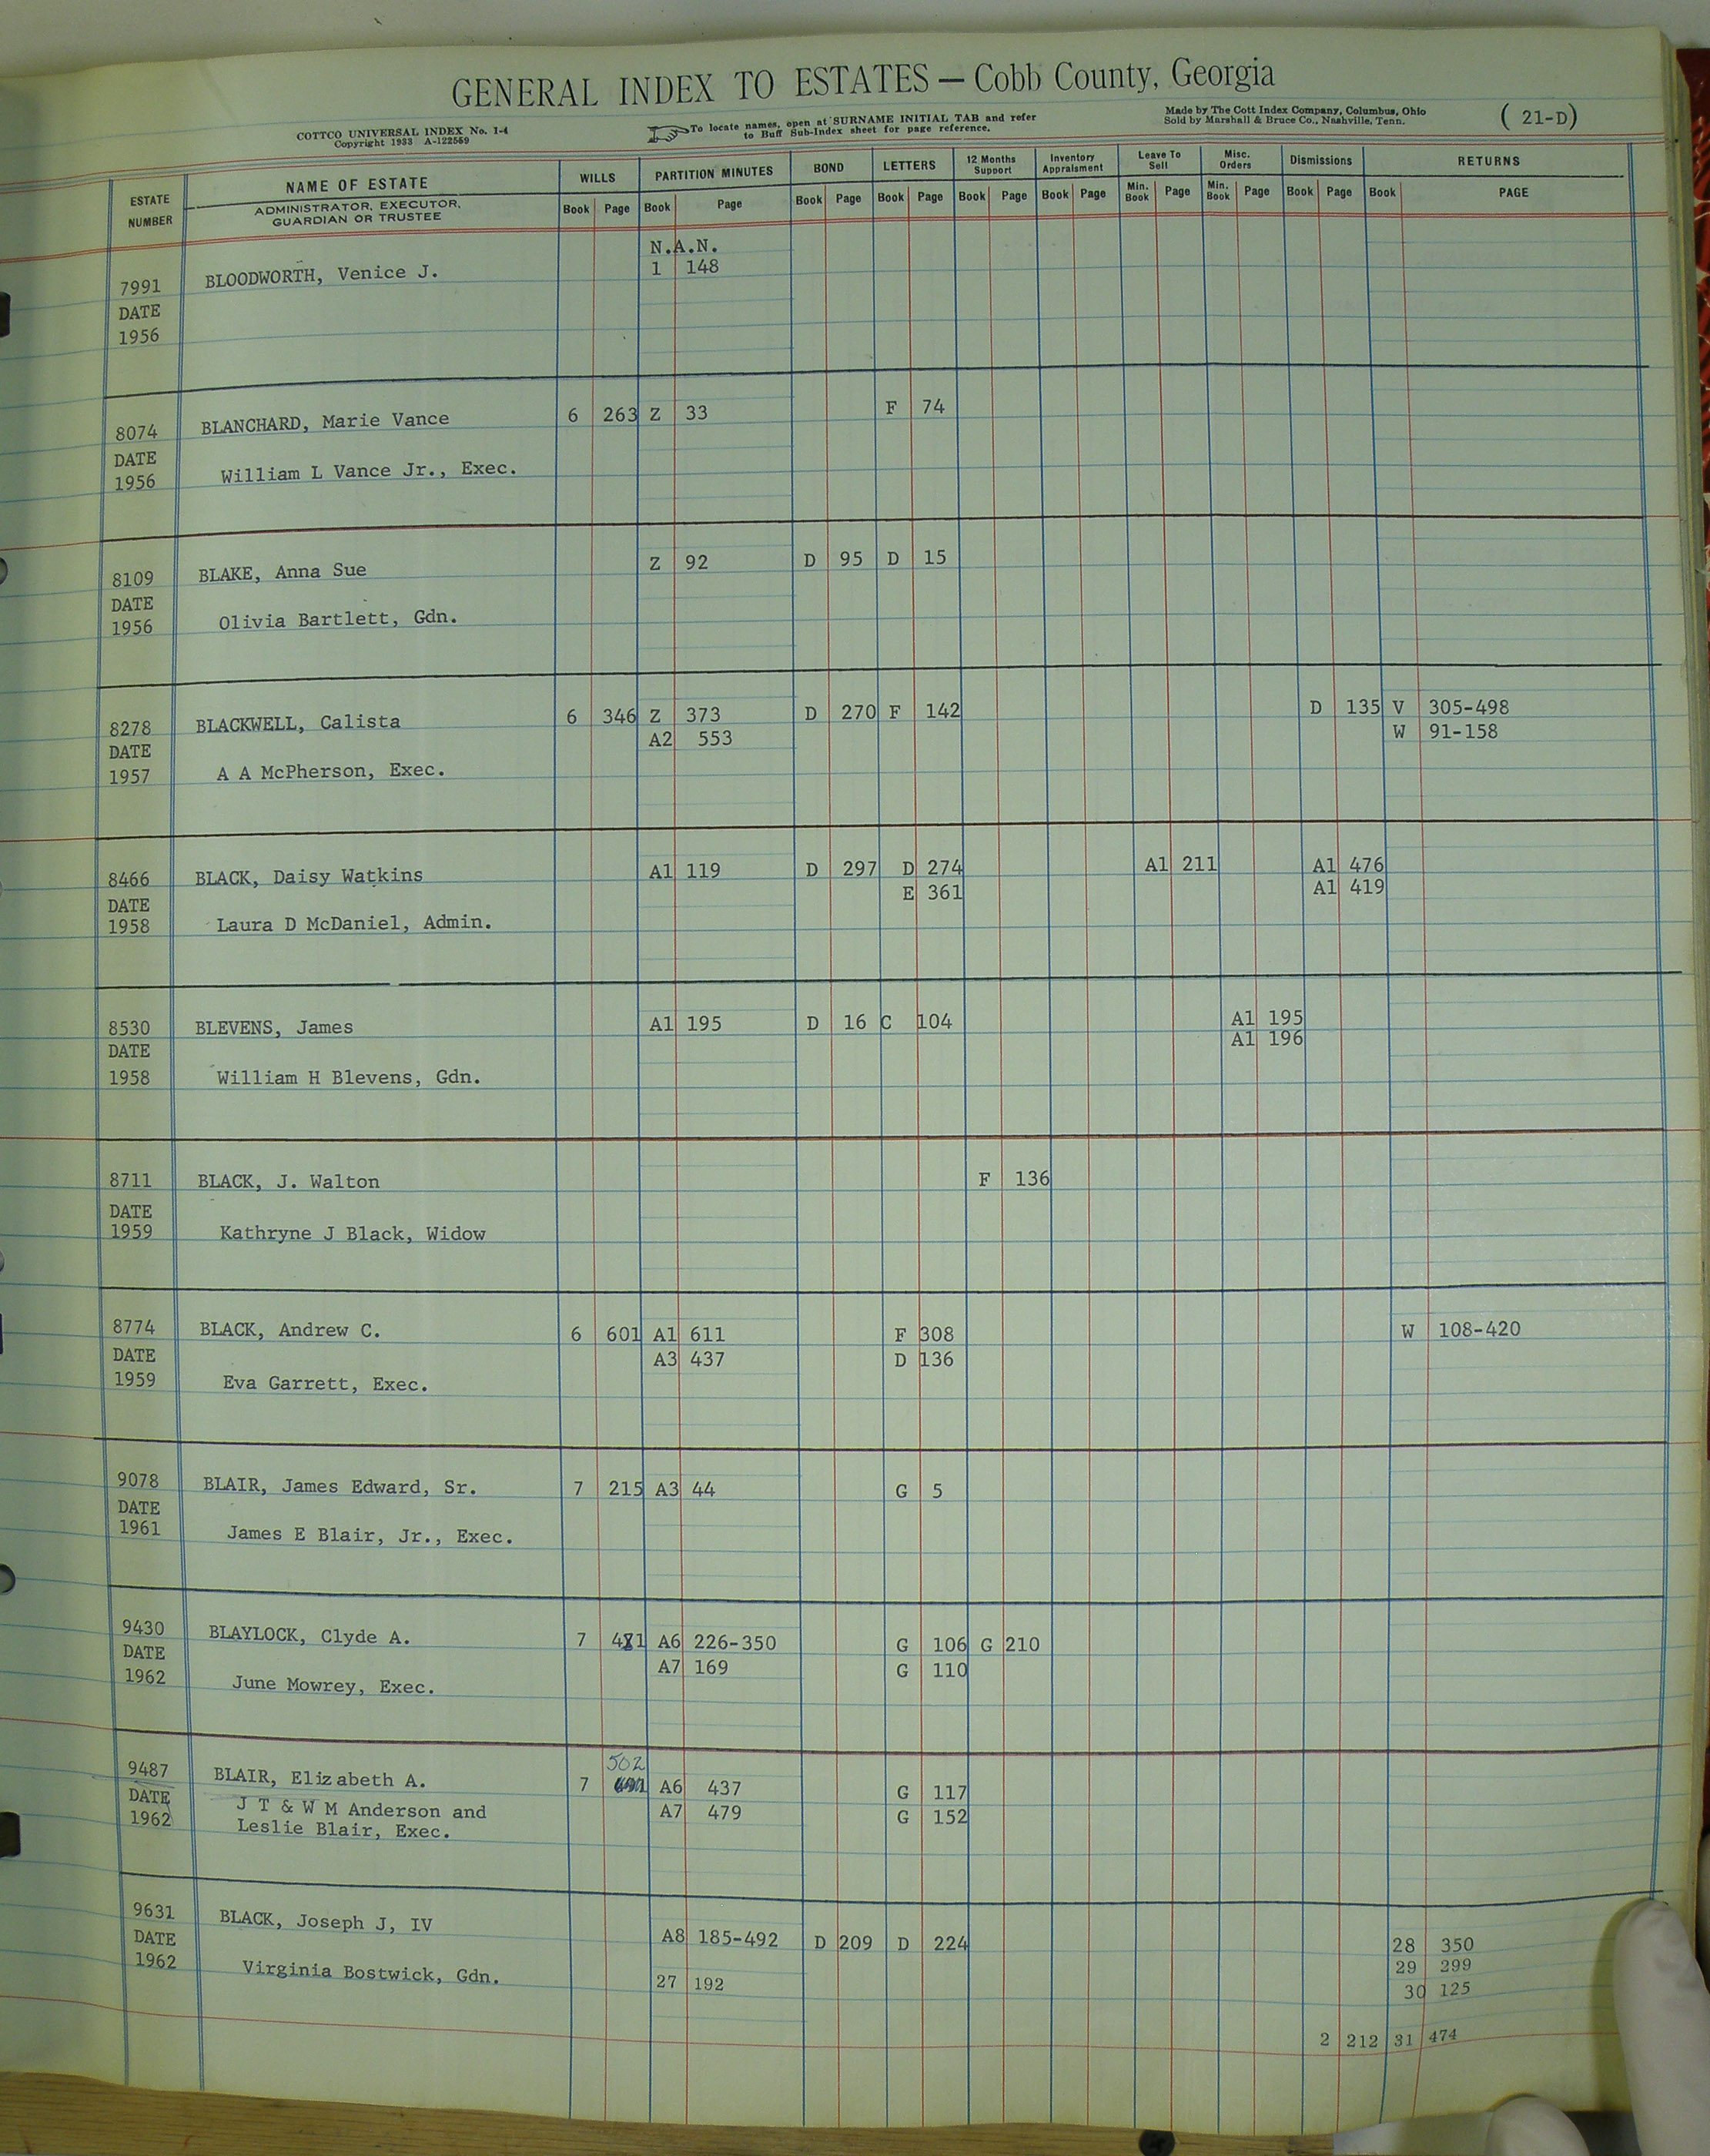 GENERAL INDEX TO ESTATES — Cobb County, Georgia
COTTCO UNIVERSAL INDEX No. 1-4
Copyright 1933 A-122569
To locate names, open at SURNAME INITIAL TAB and refer
to Buff Sub-Index sheet for page reference.
Made by The Cott Index Company, Columbus, Ohio
Sold by Marshall & Bruce Co., Nashville, Tenn.
( 21-D)
ESTATE NUMBER
NAME OF ESTATE
ADMINISTRATOR, EXECUTOR,
GUARDIAN OR TRUSTEE
WILLS PARTITION MINUTES BOND LETTERS 12 Months Support Inventory Appraisment Leave To Sell Misc. Orders Dismissions RETURNS
Book Page Book Page Book Page Book Page Book Page Book Page Min. Book Page Min. Book Page Book Page Book PAGE
N.A.N.
7991 BLOODWORTH, Venice J. 1 148
DATE
1956
8074 BLANCHARD, Marie Vance 6 263 Z 33 F 74
DATE
1956 William L Vance Jr., Exec.
8109 BLAKE, Anna Sue Z 92 D 95 D 15
DATE
1956 Olivia Bartlett, Gdn.
8278 BLACKWELL, Calista 6 346 Z 373 D 270 F 142 D 135 V 305-498
DATE A2 553 W 91-158
1957 A A McPherson, Exec.
8466 BLACK, Daisy Watkins A1 119 D 297 D 274 A1 211 A1 476
DATE E 361 A1 419
1958 Laura D McDaniel, Admin.
8530 BLEVENS, James A1 195 D 16 C 104 A1 195
DATE A1 196
1958 William H Blevens, Gdn.
8711 BLACK, J. Walton F 136
DATE
1959 Kathryne J Black, Widow
8774 BLACK, Andrew C. 6 601 A1 611 F 308 W 108-420
DATE A3 437 D 136
1959 Eva Garrett, Exec.
9078 BLAIR, James Edward, Sr. 7 215 A3 44 G 5
DATE
1961 James E Blair, Jr., Exec.
9430 BLAYLOCK, Clyde A. 7 A6 226-350 G 106 G 210
DATE A7 169 G 110
1962 June Mowrey, Exec.
502
9487 BLAIR, Elizabeth A. 7 A6 437 G 117
DATE J T & W M Anderson and A7 479 G 152
1962 Leslie Blair, Exec.
9631 BLACK, Joseph J, IV A8 185-492 D 209 D 224 28 350
DATE 29 299
1962 Virginia Bostwick, Gdn. 27 192 30 125
2 212 31 474